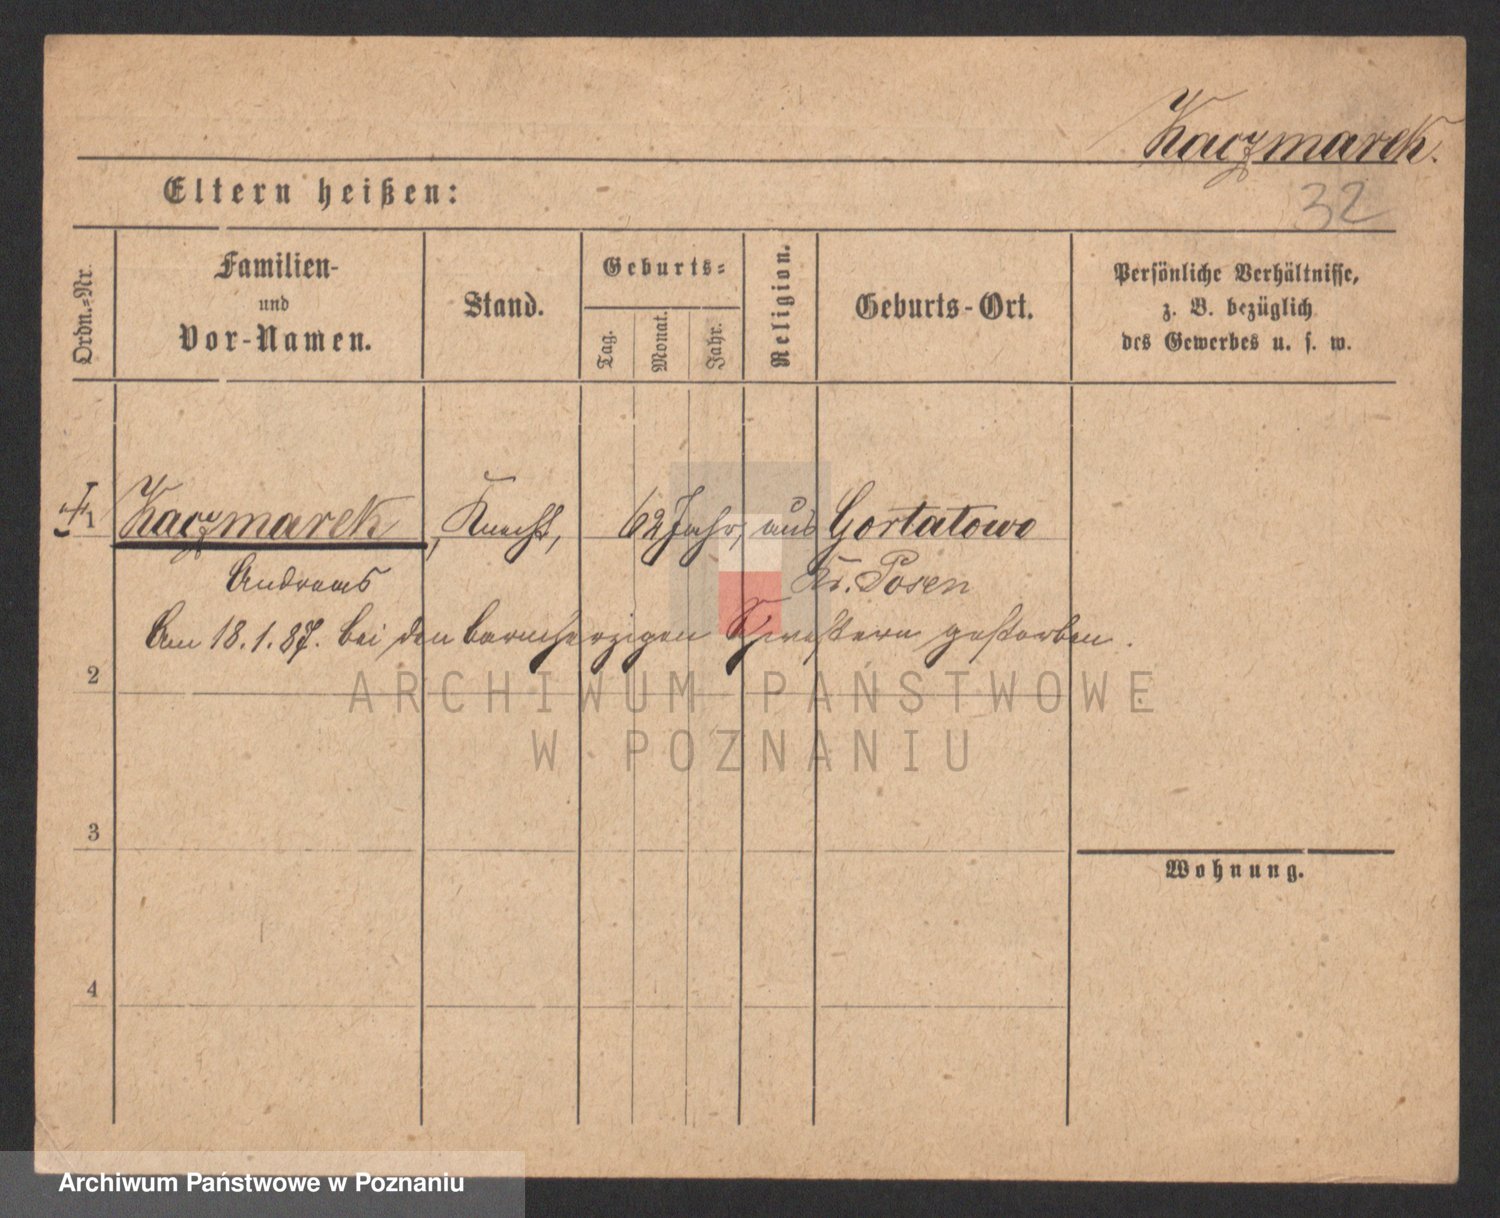 Kaczmarek.
32
Eltern heißen:
Ordn.-Nr.
Familien-
und
Vor-Namen.
Stand.
Geburts-
Tag.
Monat.
Jahr.
Religion.
Geburts-Ort.
Persönliche Verhältnisse,
z. B. bezüglich
des Gewerbes u. s. w.
1 Kaczmarek, Knecht, 62 Jahr, aus Gortatowo
Andreas Kr. Posen
Am 18.1.87. bei den barmherzigen Schwestern gestorben.
2
ARCHIWUM PAŃSTWOWE
W POZNANIU
3
Wohnung.
4
Archiwum Państwowe w Poznaniu